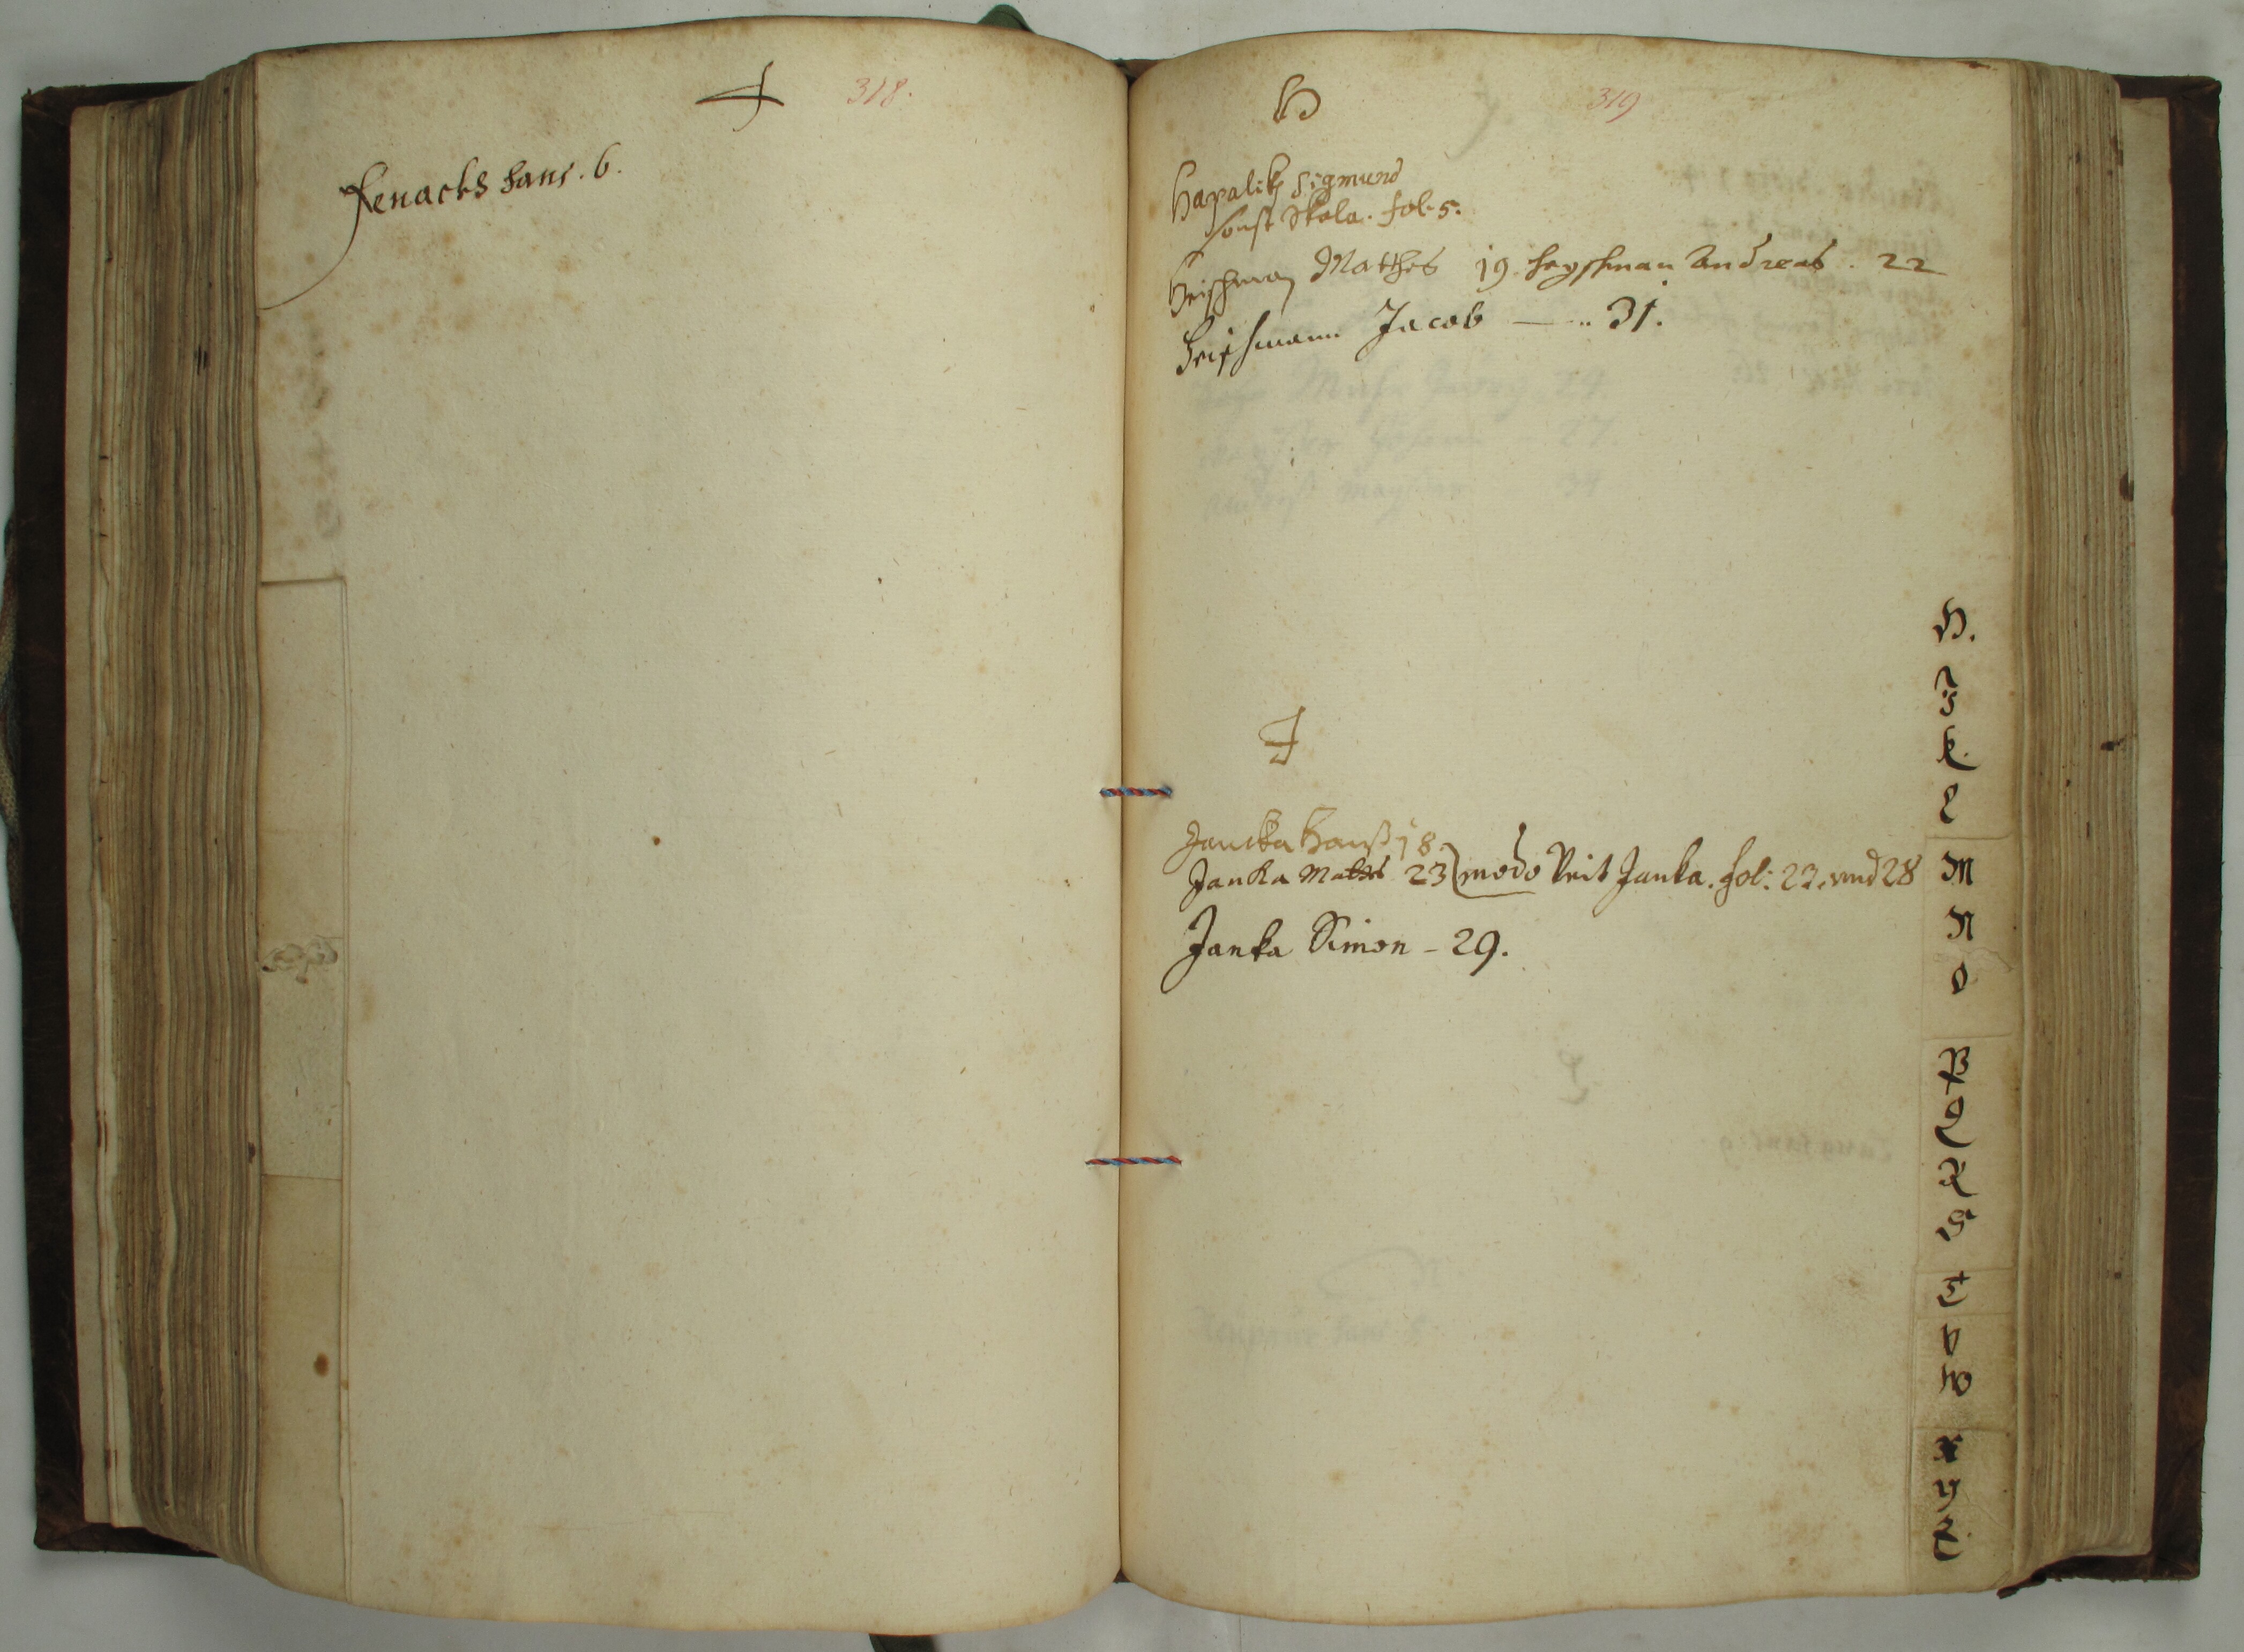 F 318.
Fenacks Hans. 6.
H 319
Hapalik Sigmund
sonst Skola. fol. 5.
Heischman Mathes 19. Heyshman Andreas. 22
Heischmann Jacob — 31.
J
Jancka Hanß 18.
Janka Mathes 23 modo Veit Janka. fol: 23. und 28
Janka Simon - 29.
H.
J
K.
L
M
N
O
P
Q
R
S
T
V
W
X
Y
Z